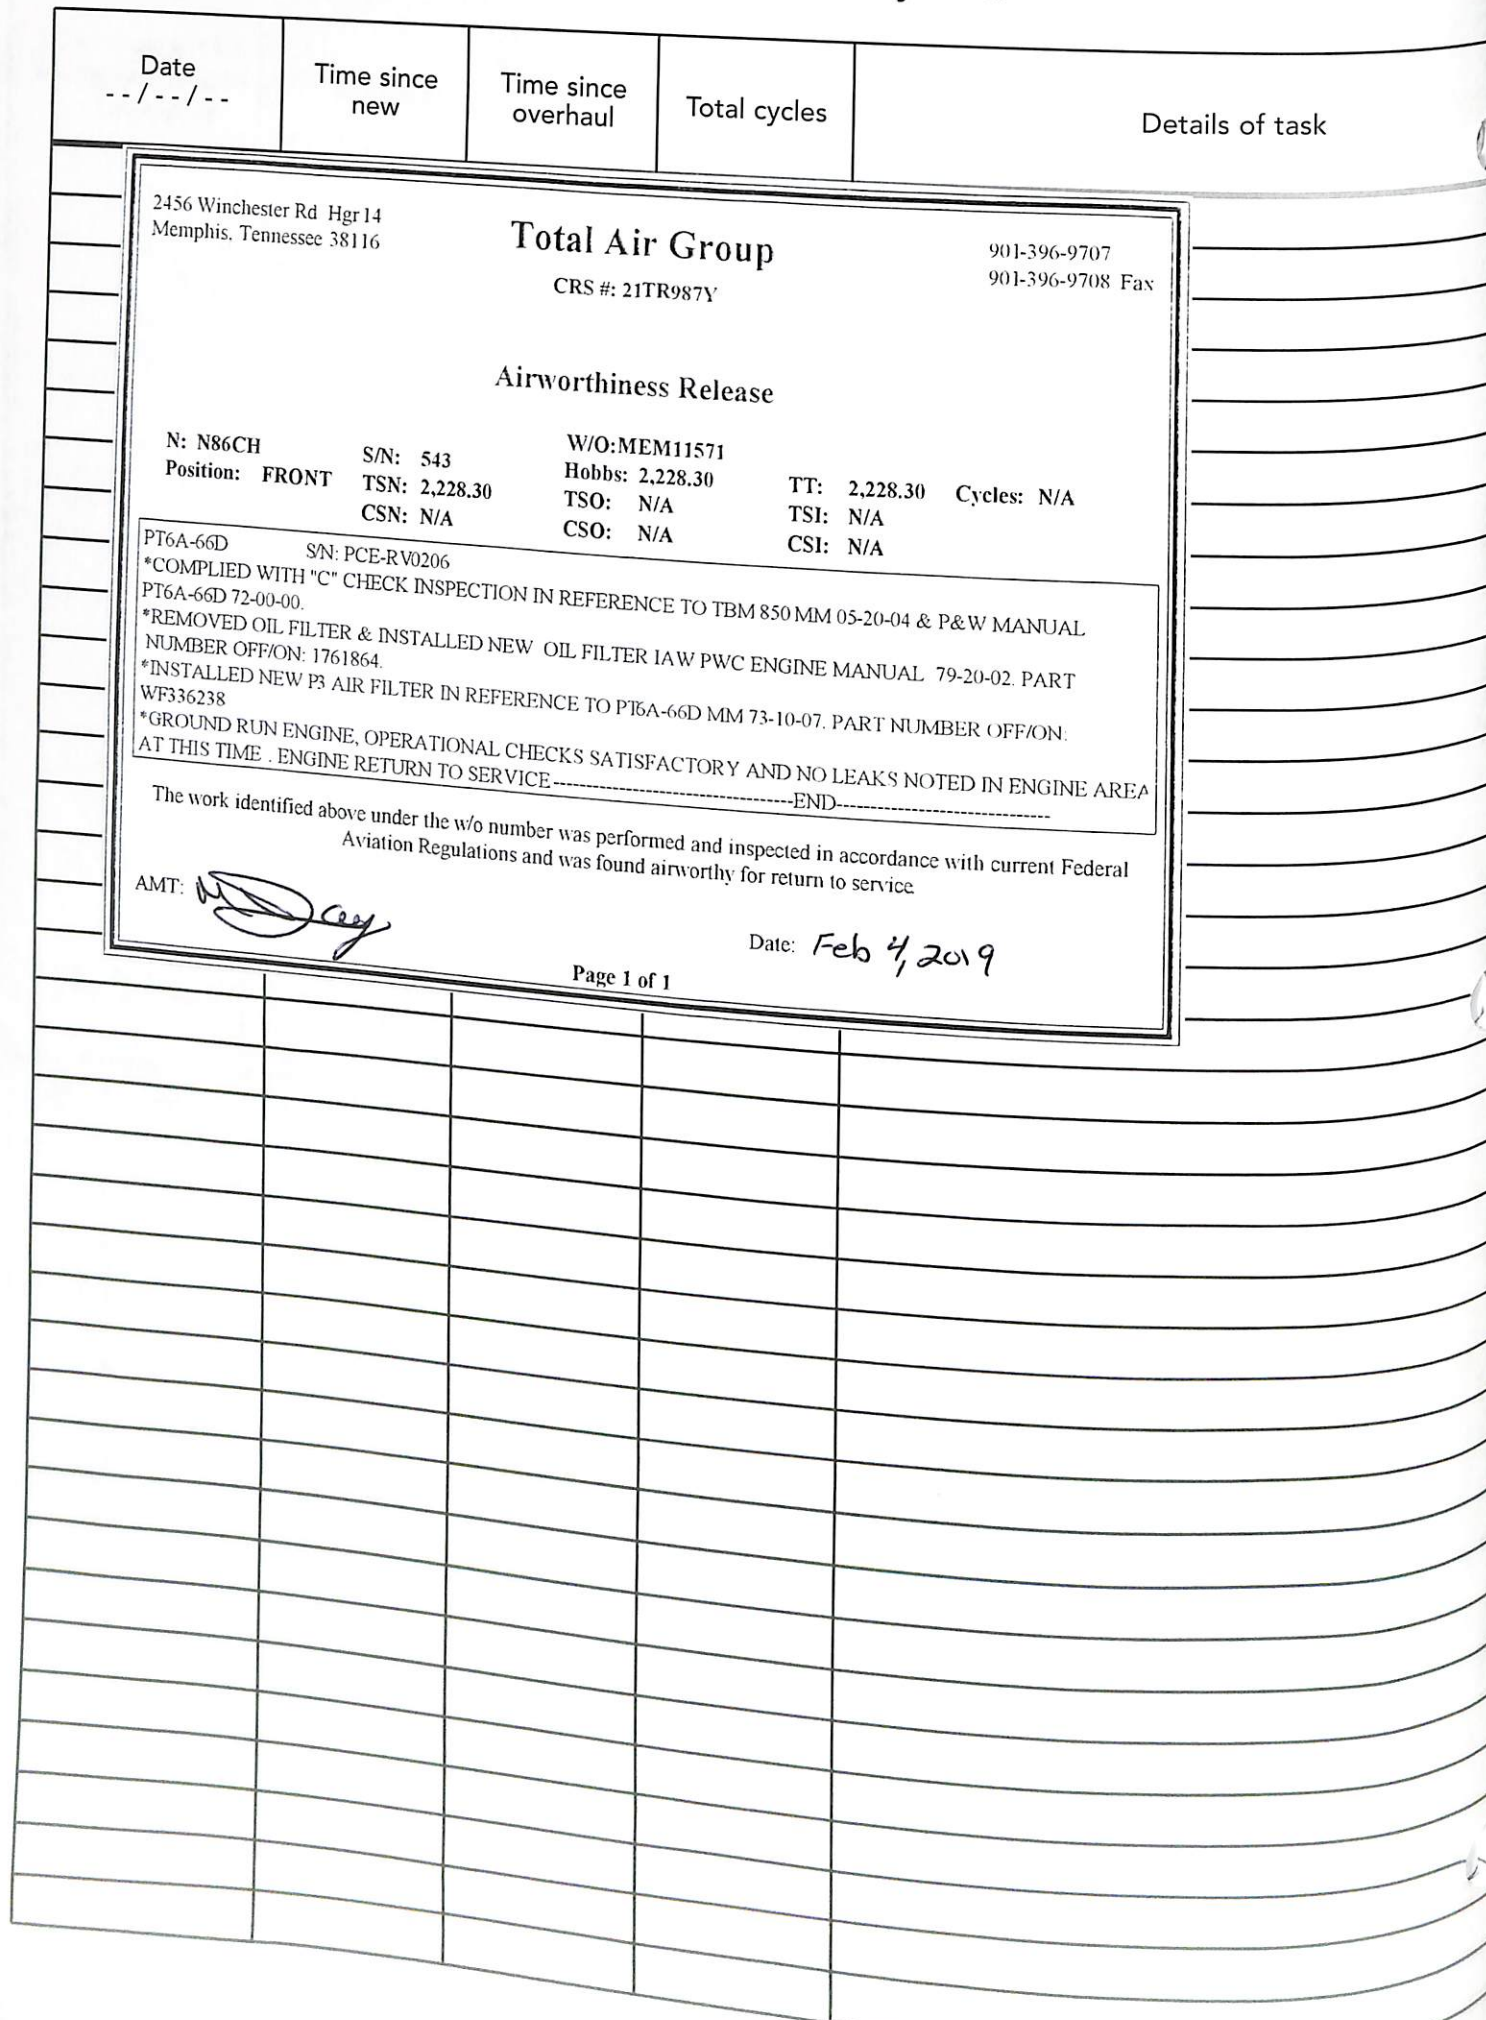 Date
--/--/--
Time since
new
Time since
overhaul
Total cycles
Details of task
2456 Winchester Rd Hgr 14
Memphis, Tennessee 38116
Total Air Group
CRS #: 21TR987Y
901-396-9707
901-396-9708 Fax
Airworthiness Release
N: N86CH S/N: 543 W/O:MEM11571
Position: FRONT TSN: 2,228.30 Hobbs: 2,228.30 TT: 2,228.30 Cycles: N/A
CSN: N/A TSO: N/A TSI: N/A
CSO: N/A CSI: N/A
PT6A-66D S/N: PCE-RV0206
*COMPLIED WITH "C" CHECK INSPECTION IN REFERENCE TO TBM 850 MM 05-20-04 & P&W MANUAL
PT6A-66D 72-00-00.
*REMOVED OIL FILTER & INSTALLED NEW OIL FILTER IAW PWC ENGINE MANUAL 79-20-02. PART
NUMBER OFF/ON: 1761864.
*INSTALLED NEW P3 AIR FILTER IN REFERENCE TO PT6A-66D MM 73-10-07. PART NUMBER OFF/ON:
WF336238
*GROUND RUN ENGINE, OPERATIONAL CHECKS SATISFACTORY AND NO LEAKS NOTED IN ENGINE AREA
AT THIS TIME . ENGINE RETURN TO SERVICE-----------------------------------END-------------------------------
The work identified above under the w/o number was performed and inspected in accordance with current Federal
Aviation Regulations and was found airworthy for return to service
AMT:
Date: Feb 4, 2019
Page 1 of 1